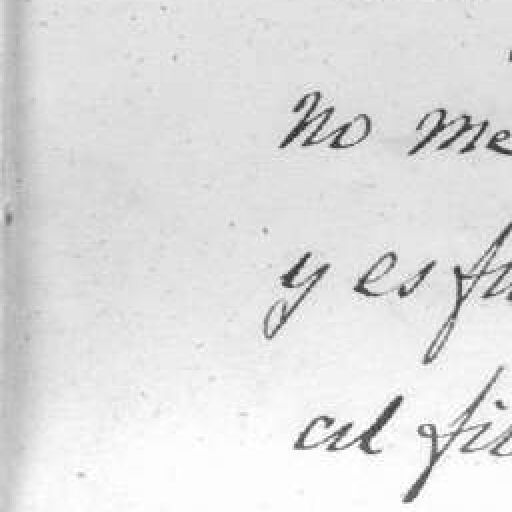 No me
y es fu
al fi